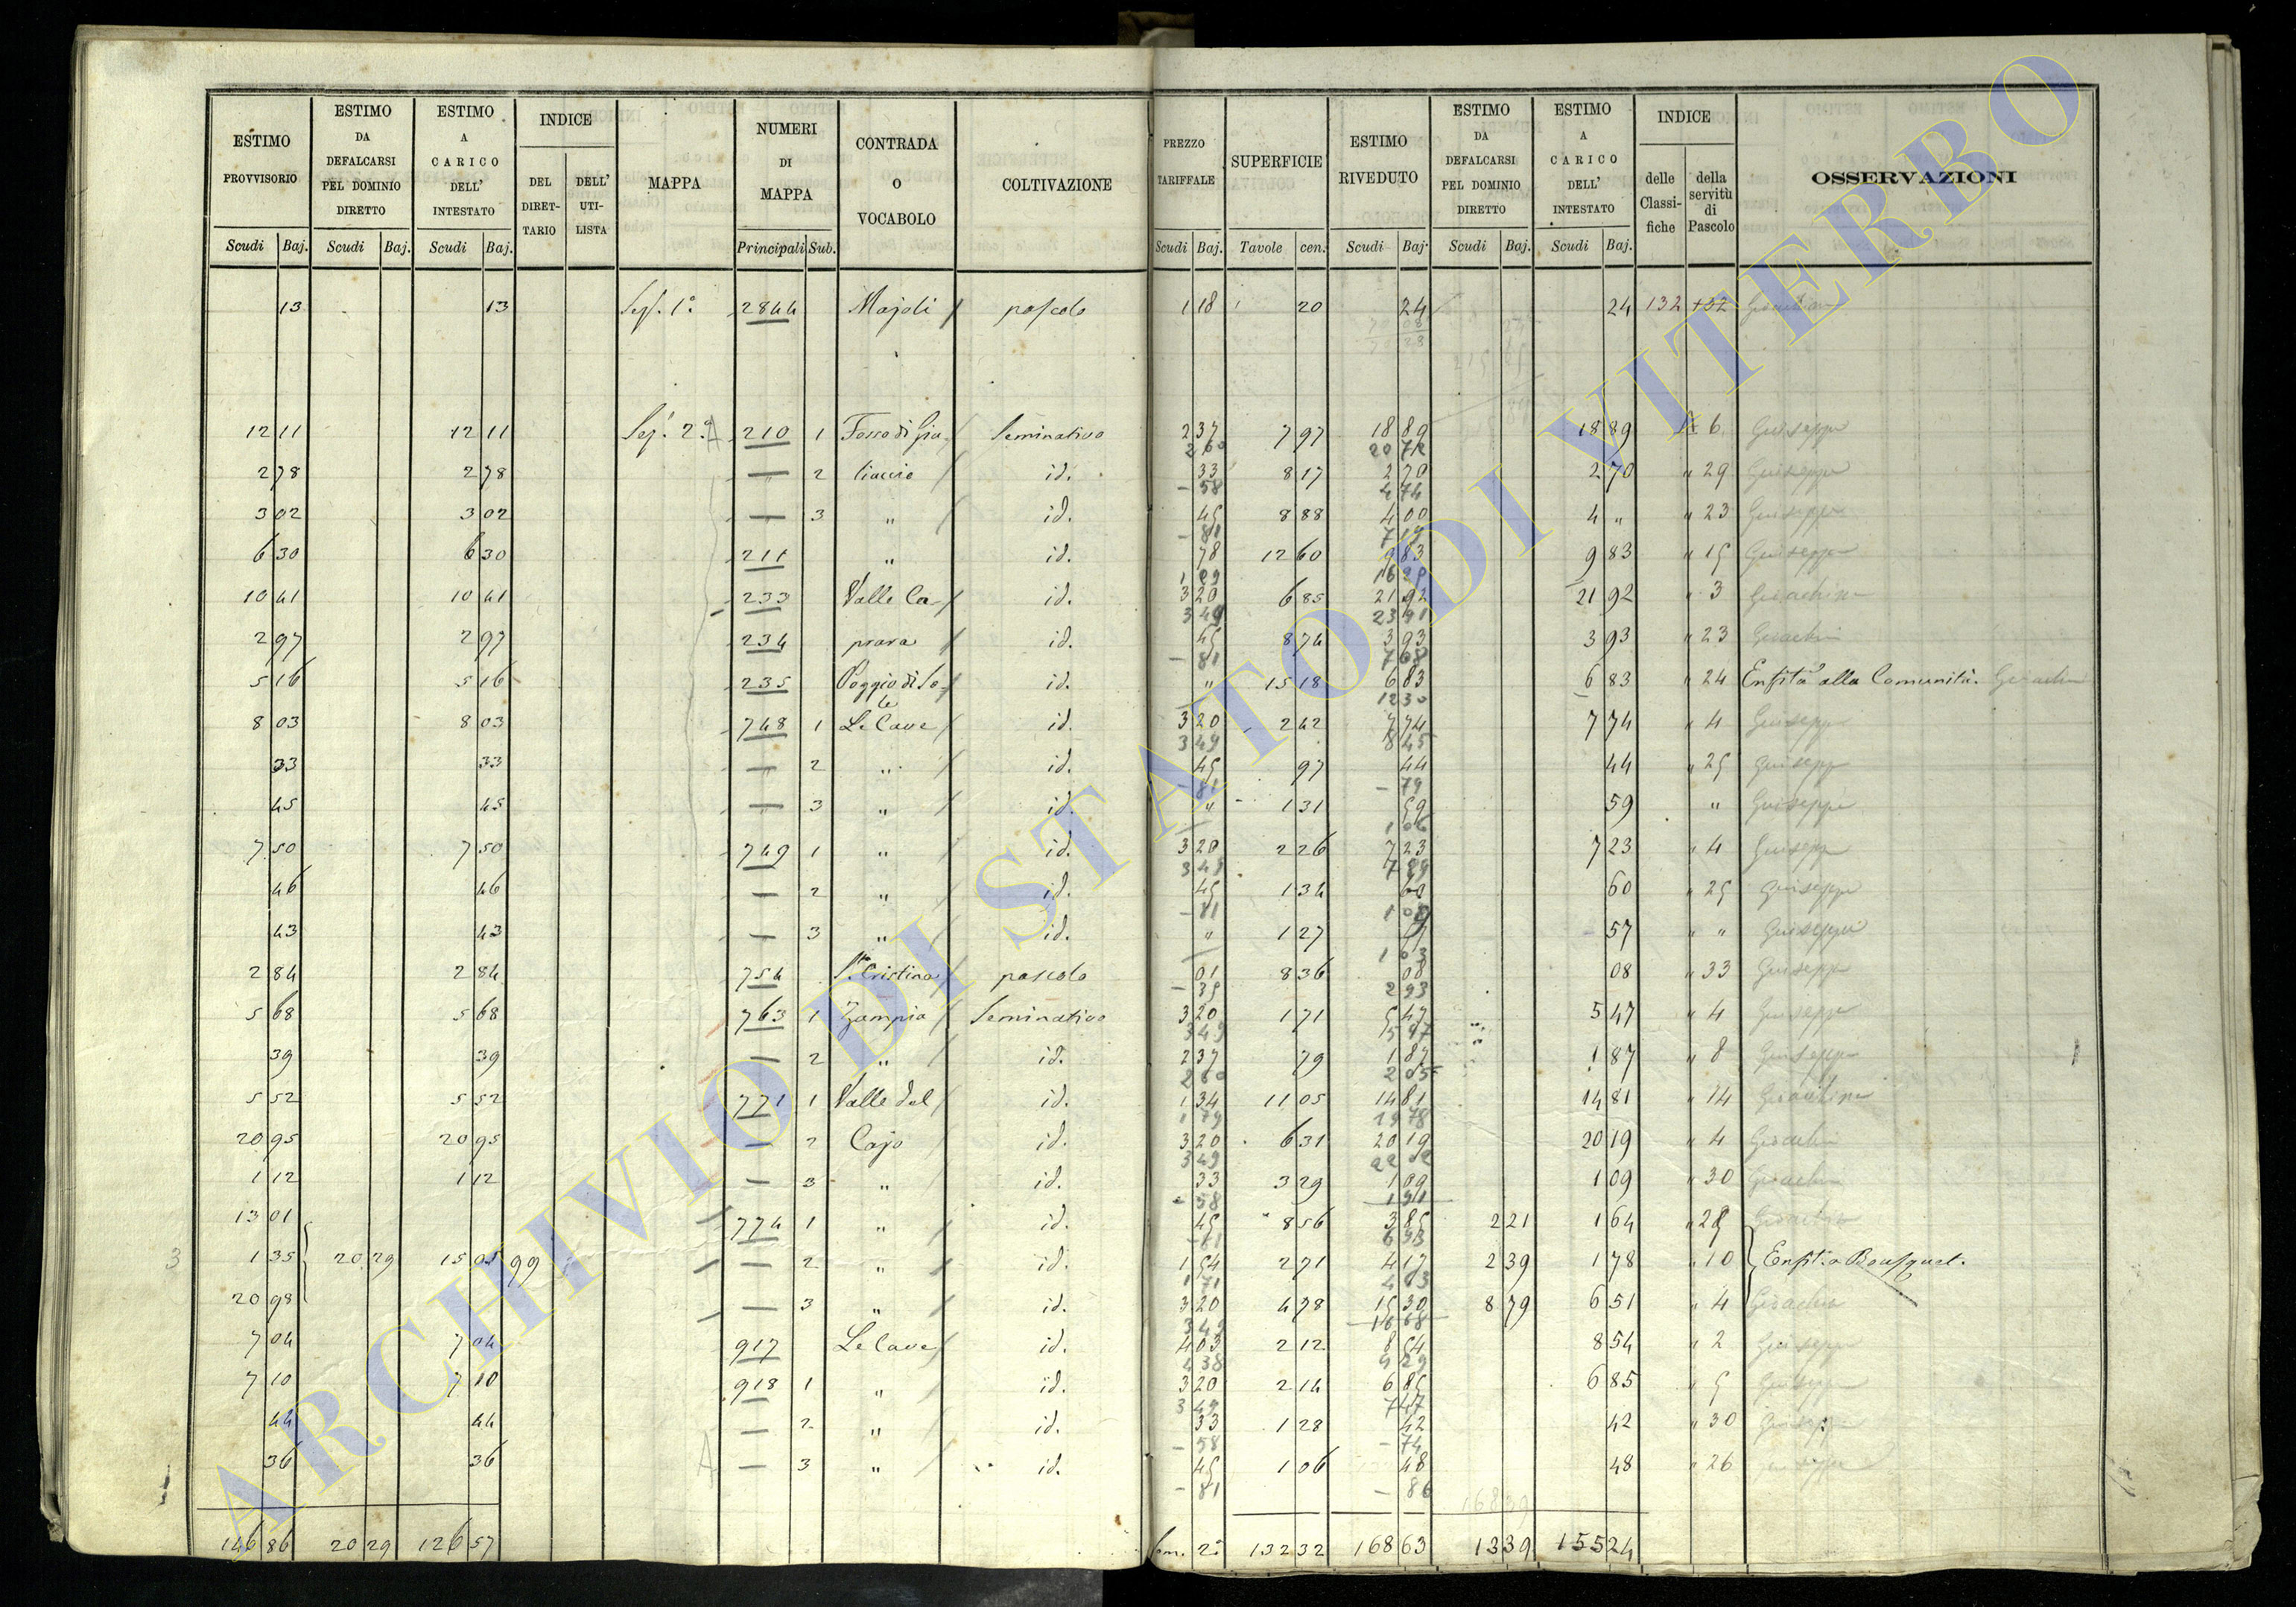 ESTIMO PROVVISORIO | ESTIMO DA DEFALCARSI PEL DOMINIO DIRETTO | ESTIMO A CARICO DELL' INTESTATO | INDICE | MAPPA | NUMERI DI MAPPA | CONTRADA O VOCABOLO | COLTIVAZIONE | PREZZO TARIFFALE | SUPERFICIE | ESTIMO RIVEDUTO | ESTIMO DA DEFALCARSI PEL DOMINIO DIRETTO | ESTIMO A CARICO DELL' INTESTATO | INDICE | OSSERVAZIONI
DEL DIRETTARIO | DELL' UTILISTA | delle Classifiche | della servitù di Pascolo
Scudi Baj. | Scudi Baj. | Scudi Baj. | Principali Sub. | Scudi Baj. | Tavole cen. | Scudi Baj. | Scudi Baj. | Scudi Baj.
13 | 13 | 1° | 2844 | Majoli | pascolo | 1 18 | 20 | 24 | 24 | 132
12 11 | 12 11 | 2° | 210 | 1 | Fosso di | Seminativo | 2 37 | 7 97 | 18 89 | 18 89 | 6 | Giuseppe
2 60 | 20 72
2 78 | 2 78 | — | 2 | id. | 33 | 8 17 | 2 70 | 2 70 | " 29 | Giuseppe
— 58 | 4 74
3 02 | 3 02 | — | 3 | " | id. | 45 | 8 88 | 4 00 | 4 " | " 23 | Giuseppe
— 81 | 7 19
6 30 | 6 30 | 211 | " | id. | 78 | 12 60 | 9 83 | 9 83 | " 15 | Giuseppe
1 29
10 41 | 10 41 | 233 | Valle Ca- | id. | 3 20 | 6 85 | 21 92 | 21 92 | " 3
3 49 | 23 91
2 97 | 2 97 | 234 | prara | id. | 45 | 8 74 | 3 93 | 3 93 | " 23
— 81 | 7 08
5 16 | 5 16 | 235 | Poggio di So- | id. | " | 15 18 | 6 83 | 6 83 | " 24 | alla Comunità.
12 30
8 03 | 8 03 | 748 | 1 | Le Cave | id. | 3 20 | 2 42 | 7 74 | 7 74 | " 4 | Giuseppe
3 49 | 8 45
33 | 33 | — | 2 | " | id. | 45 | 97 | 44 | 44 | " 25
— 81 | — 79
45 | 45 | — | 3 | " | id. | " | 1 31 | 59 | 59 | " | Giuseppe
1 06
7 50 | 7 50 | 749 | 1 | " | id. | 3 20 | 2 26 | 7 23 | 7 23 | " 4
3 49 | 7 89
46 | 46 | — | 2 | " | id. | 45 | 1 34 | 60 | 60 | " 25 | Giuseppe
— 81 | 1 08
43 | 43 | — | 3 | " | id. | " | 1 27 | 57 | 57 | " " | Giuseppe
1 03
2 84 | 2 84 | 754 | Cristina | pascolo | 01 | 8 36 | 08 | 08 | " 33
— 35 | 2 93
5 68 | 5 68 | 763 | 1 | Zampia | Seminativo | 3 20 | 1 71 | 5 47 | 5 47 | " 4 | Giuseppe
3 49
39 | 39 | — | 2 | " | id. | 2 37 | 79 | 1 87 | 1 87 | " 8
2 60 | 2 05
5 52 | 5 52 | 771 | 1 | Valle del | id. | 1 34 | 11 05 | 14 81 | 14 81 | " 14
1 79 | 19 78
20 95 | 20 95 | — | 2 | Cajo | id. | 3 20 | 6 31 | 20 19 | 20 19 | " 4
3 49 | 22 02
1 12 | 1 12 | — | 3 | " | id. | 33 | 3 29 | 1 09 | 1 09 | " 30
— 58 | 1 91
13 01 | 774 | 1 | " | id. | 45 | 8 56 | 3 85 | 2 21 | 1 64
— 81 | 6 93
3 | 1 35 | 20 29 | 15 05 | 99 | — | 2 | " | id. | 1 54 | 2 71 | 4 17 | 2 39 | 1 78 | " 10
1 71 | 4 63
20 98 | — | 3 | " | id. | 3 20 | 4 78 | 15 30 | 8 79 | 6 51 | " 4
3 49 | 16 68
7 04 | 7 04 | 917 | Le Cave | id. | 4 03 | 2 12 | 8 54 | 8 54 | " 2
4 38 | 9 29
7 10 | 7 10 | 918 | 1 | " | id. | 3 20 | 2 14 | 6 85 | 6 85 | " 5
3 49 | 7 47
44 | 44 | — | 2 | " | id. | 33 | 1 28 | 42 | 42 | " 30
— 58 | — 74
36 | 36 | — | 3 | " | id. | 45 | 1 06 | 48 | 48 | " 26
— 81 | — 86
168 39
146 86 | 20 29 | 126 57 | 2° | 132 32 | 168 63 | 13 39 | 155 24
ARCHIVIO DI STATO DI VITERBO